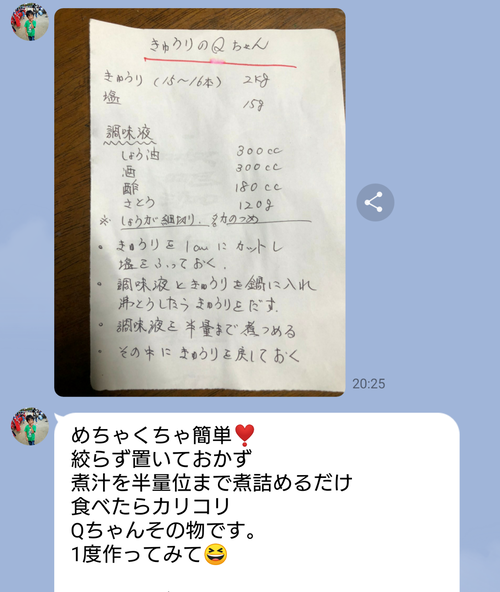 きゅうりのQちゃん
きゅうり (15〜16本) 2kg
塩 15g
調味液
しょう油 300cc
酒 300cc
酢 180cc
さとう 120g
※ しょうが細切り、たかのつめ
・きゅうりを1cmにカットし
塩をふっておく.
・調味液ときゅうりを鍋に入れ
沸とうしたらきゅうりをだす.
・調味液を半量まで煮つめる
・その中にきゅうりを戻しておく
20:25
めちゃくちゃ簡単❣️
絞らず置いておかず
煮汁を半量位まで煮詰めるだけ
食べたらカリコリ
Qちゃんその物です。
1度作ってみて😆